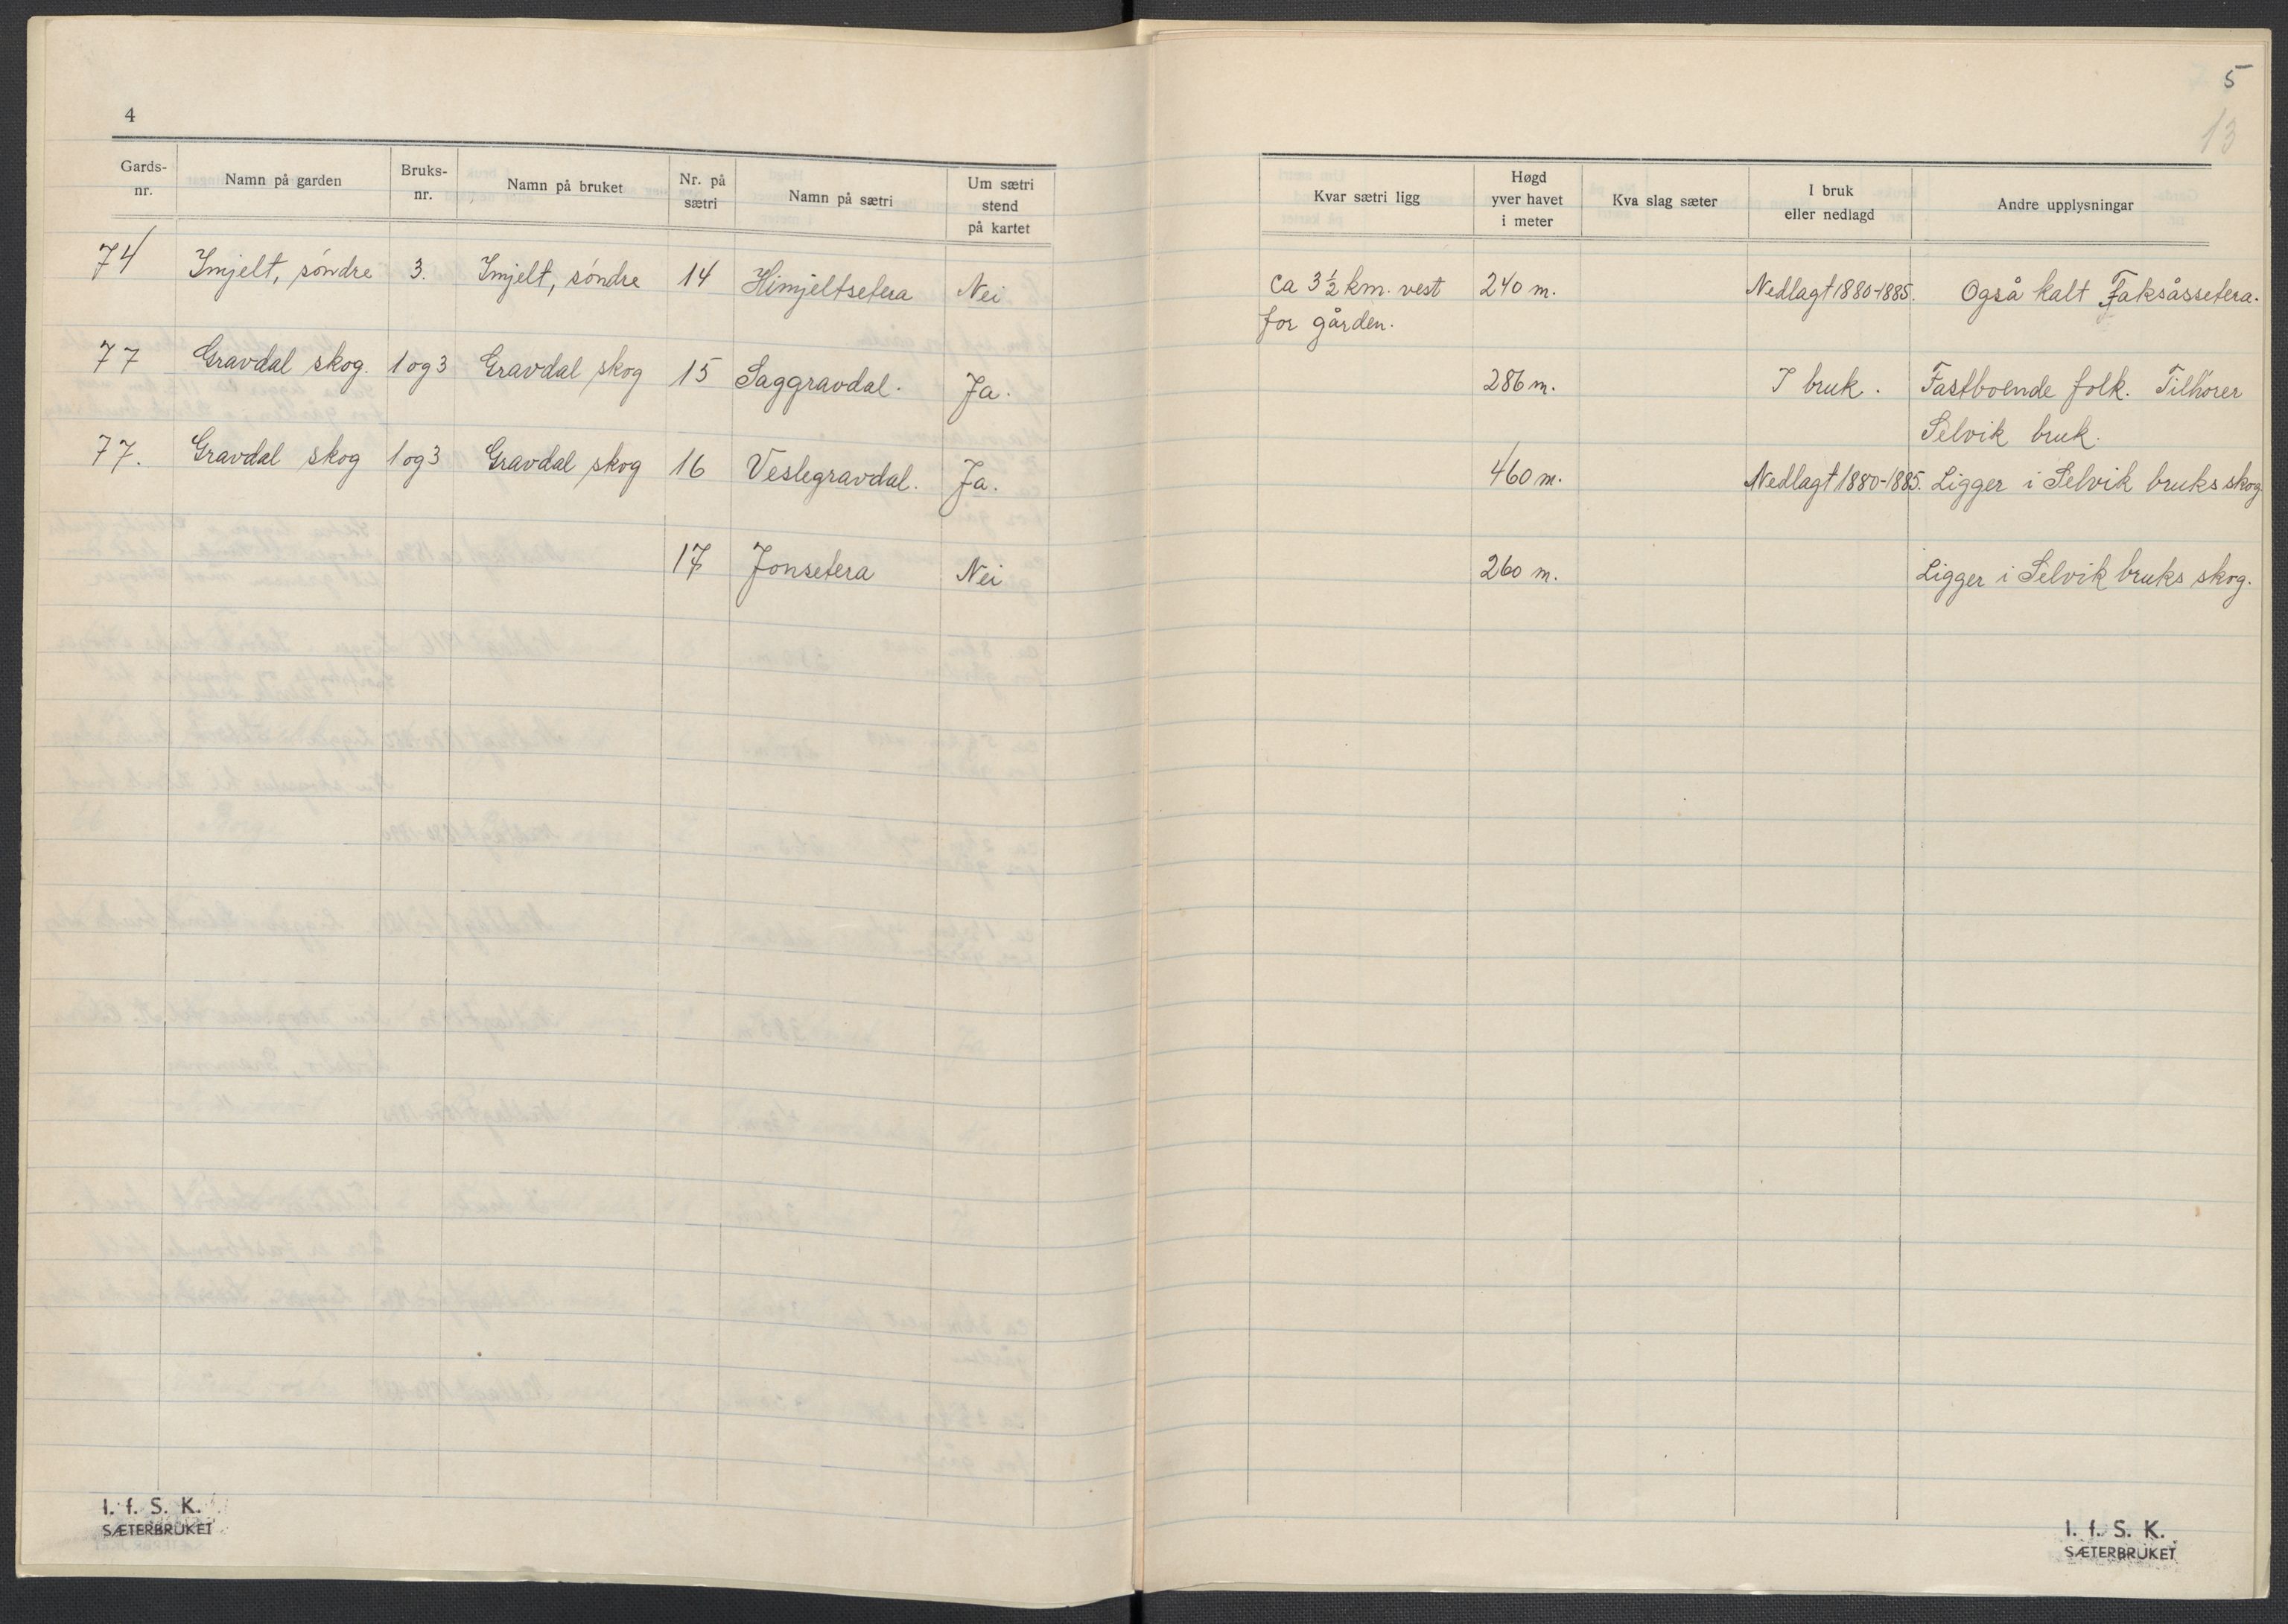 4
Gards-nr. Namn på garden Bruks-nr. Namn på bruket Nr. på sætri Namn på sætri Um sætri stend på kartet
74 Imjelt, søndre 3. Imjelt, søndre 14 Himjeltsetera Nei
77 Gravdal skog. 1 og 3 Gravdal skog 15 Saggravdal. Ja.
77. Gravdal skog 1 og 3 Gravdal skog 16 Veslegravdal. Ja.
17 Jonsetera Nei
I. f. S. K.
SÆTERBRUKET
5
13
Kvar sætri ligg Høgd yver havet i meter Kva slag sæter I bruk eller nedlagd Andre upplysningar
ca 3½ km. vest 240 m. Nedlagt 1880-1885. Også kalt Faksåssetera.
for gården.
286 m. I bruk. Fastboende folk. Tilhører
Selvik bruk.
460 m. Nedlagt 1880-1885. Ligger i Selvik bruks skog
260 m. Ligger i Selvik bruks skog.
I. f. S. K.
SÆTERBRUKET